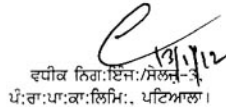 13/1/12
ਵਧੀਕ ਨਿਗ:ਇੰਜ:/ਸੇਲਜ਼-3,
ਪੰ:ਰਾ:ਪਾ:ਕਾ:ਲਿਮਿ:, ਪਟਿਆਲਾ।